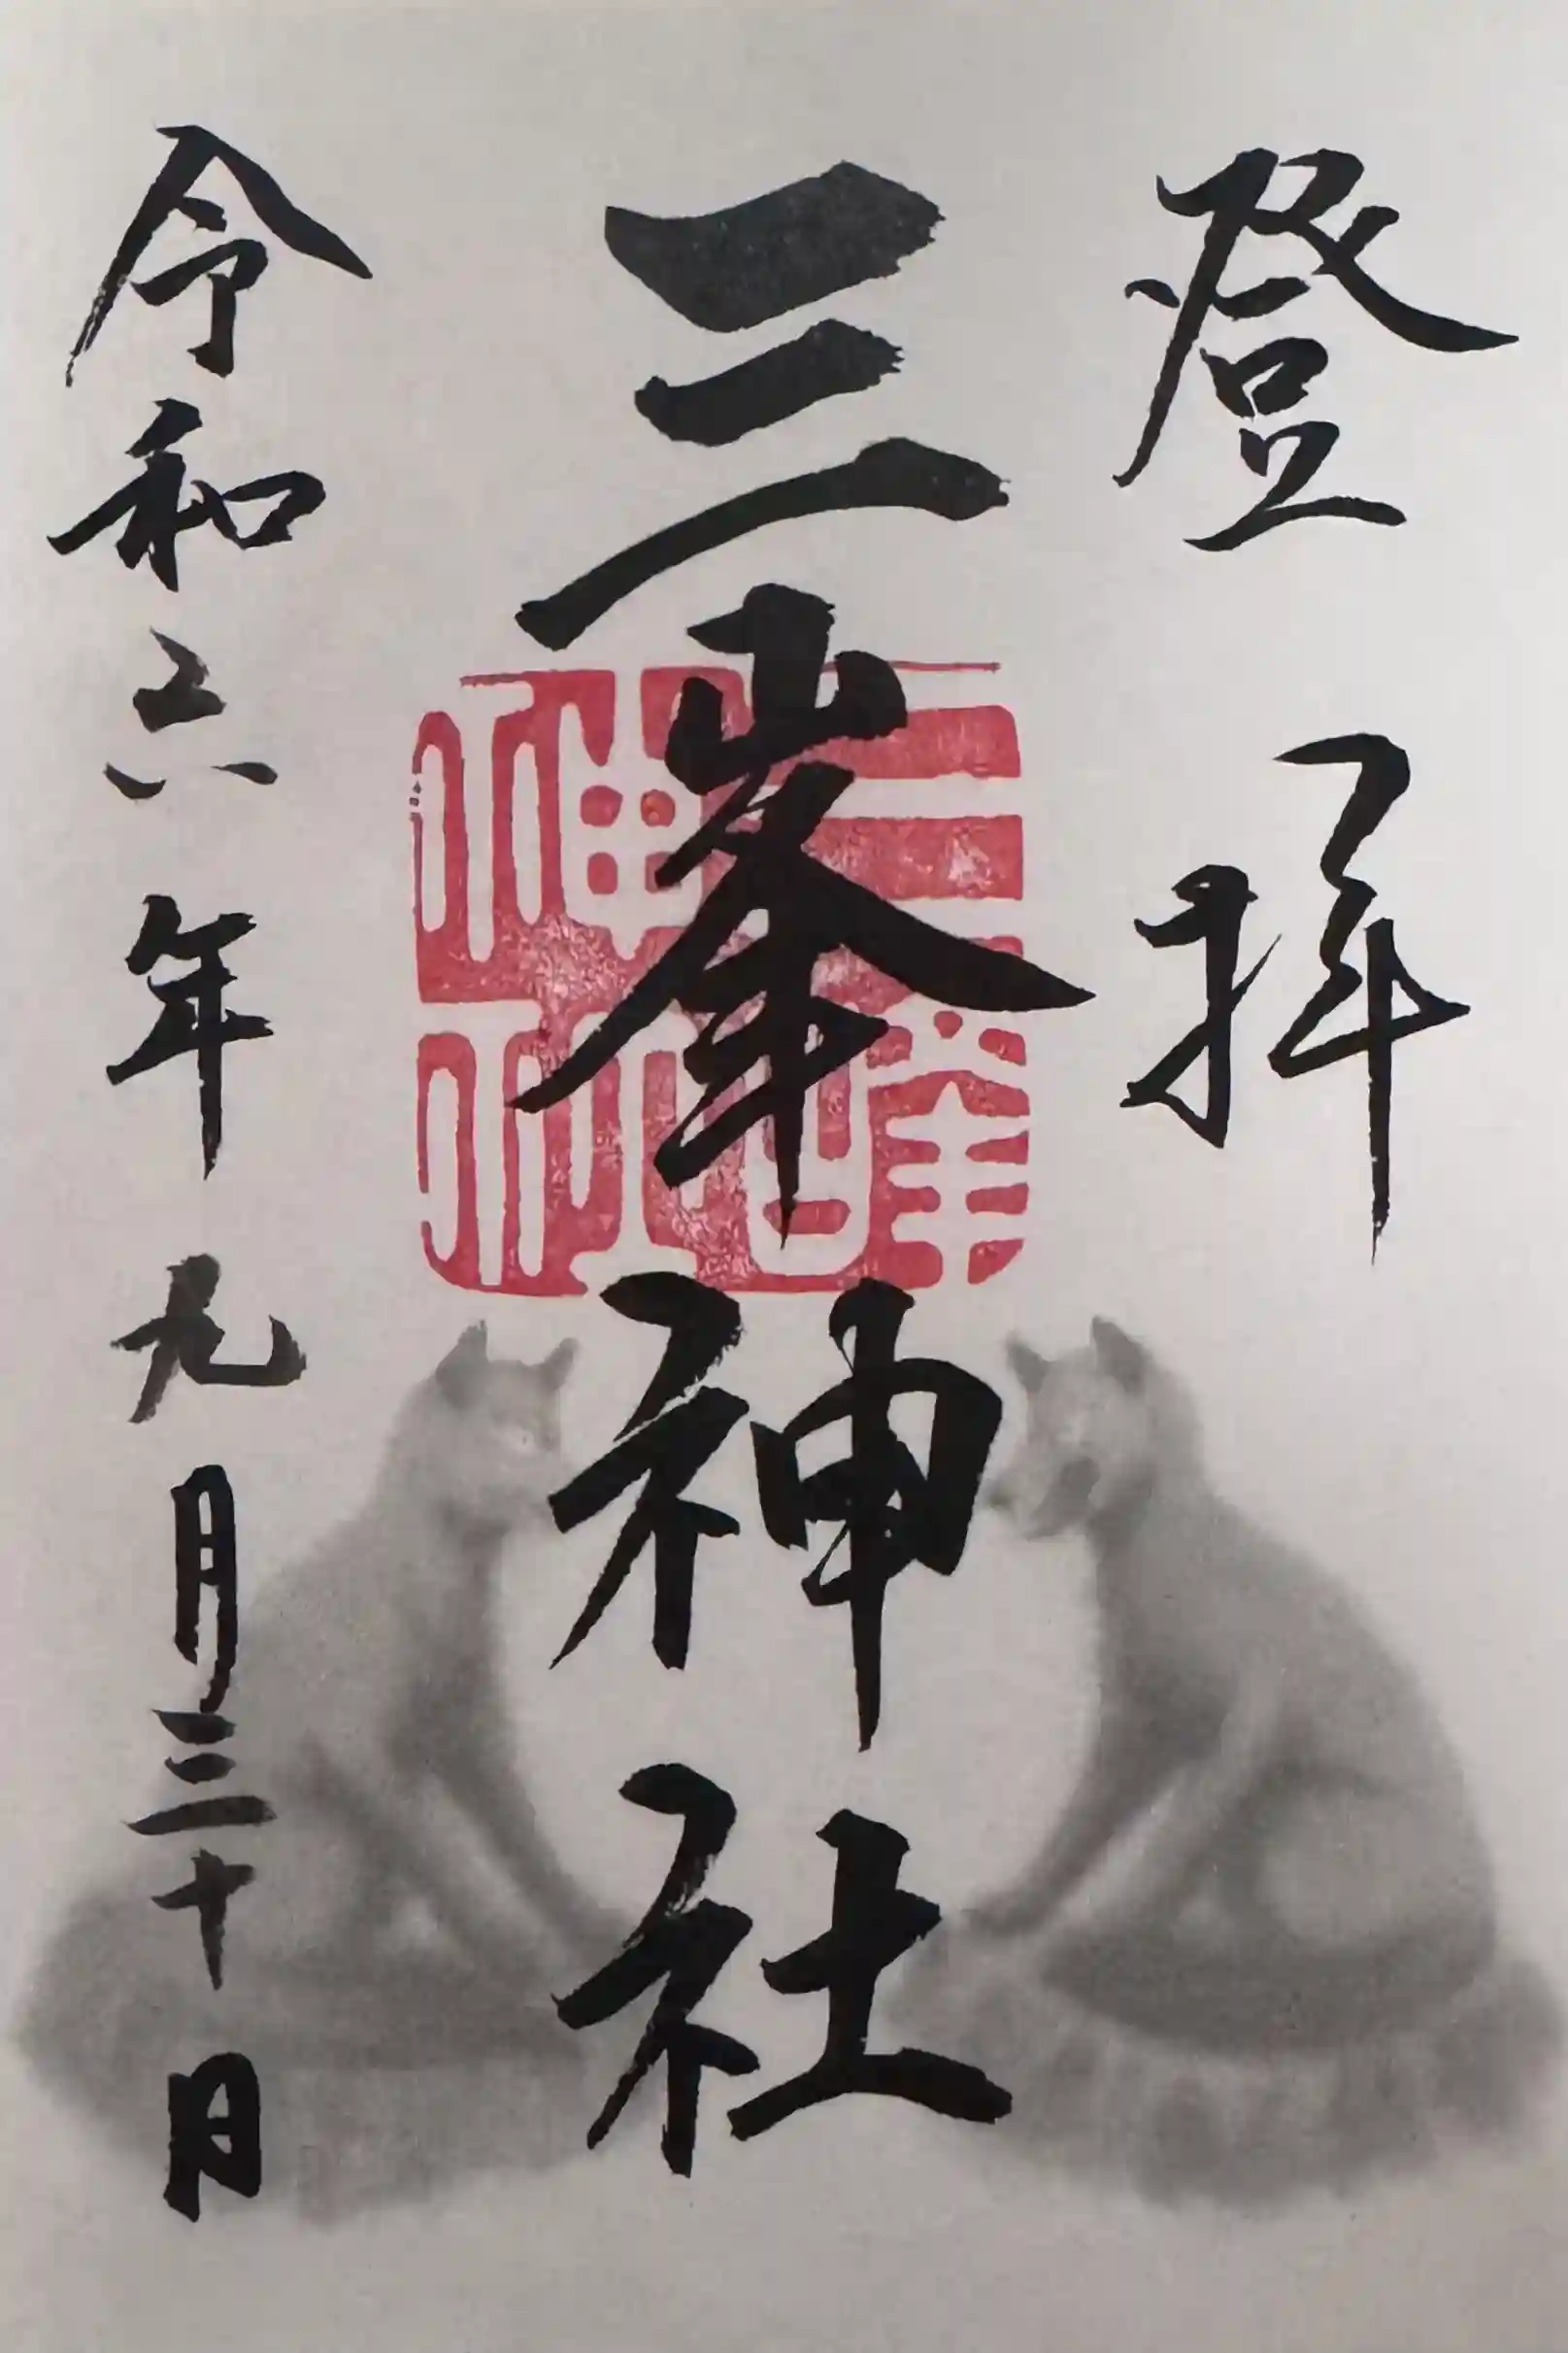 登拝
三峯神社
三峯神社
令和六年九月三十日